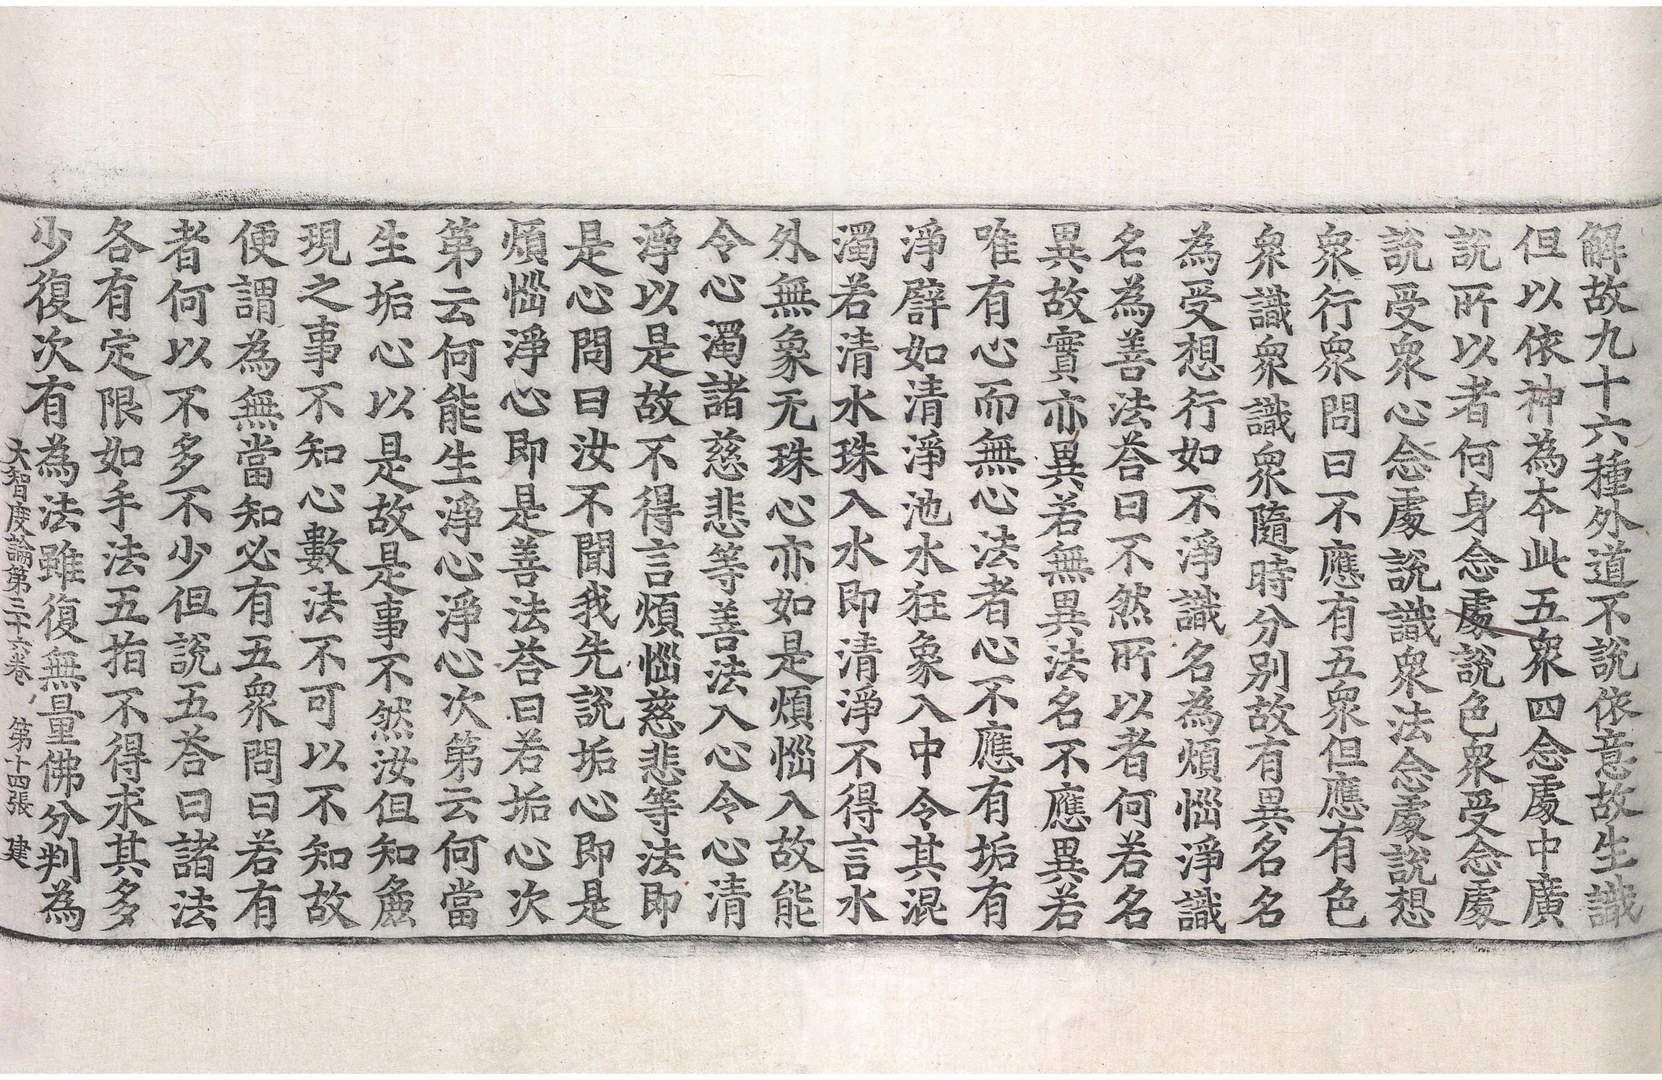 解故九十六種外道不說依意故生識
但以依神為本此五眾四念處中廣
說所以者何身念處說色眾受念處
說受眾心念處說識眾法念處說想
眾行眾問曰不應有五眾但應有色
眾識眾識眾隨時分別故有異名名
為受想行如不淨識名為煩惱淨識
名為善法荅曰不然所以者何若名
異故實亦異若無異法名不應異若
唯有心而無心法者心不應有垢有
淨譬如清淨池水狂象入中令其混
濁若清水珠入水即清淨不得言水
外無象无珠心亦如是煩惱入故能
令心濁諸慈悲等善法入心令心清
淨以是故不得言煩惱慈悲等法即
是心問曰汝不聞我先說垢心即是
煩惱淨心即是善法荅曰若垢心次
第云何能生淨心淨心次第云何當
生垢心以是故是事不然汝但知麁
現之事不知心數法不可以不知故
便謂為無當知必有五眾問曰若有
者何以不多不少但說五荅曰諸法
各有定限如手法五指不得求其多
少復次有為法雖復無量佛分判為
大智度論第三十六卷 第十四張 建